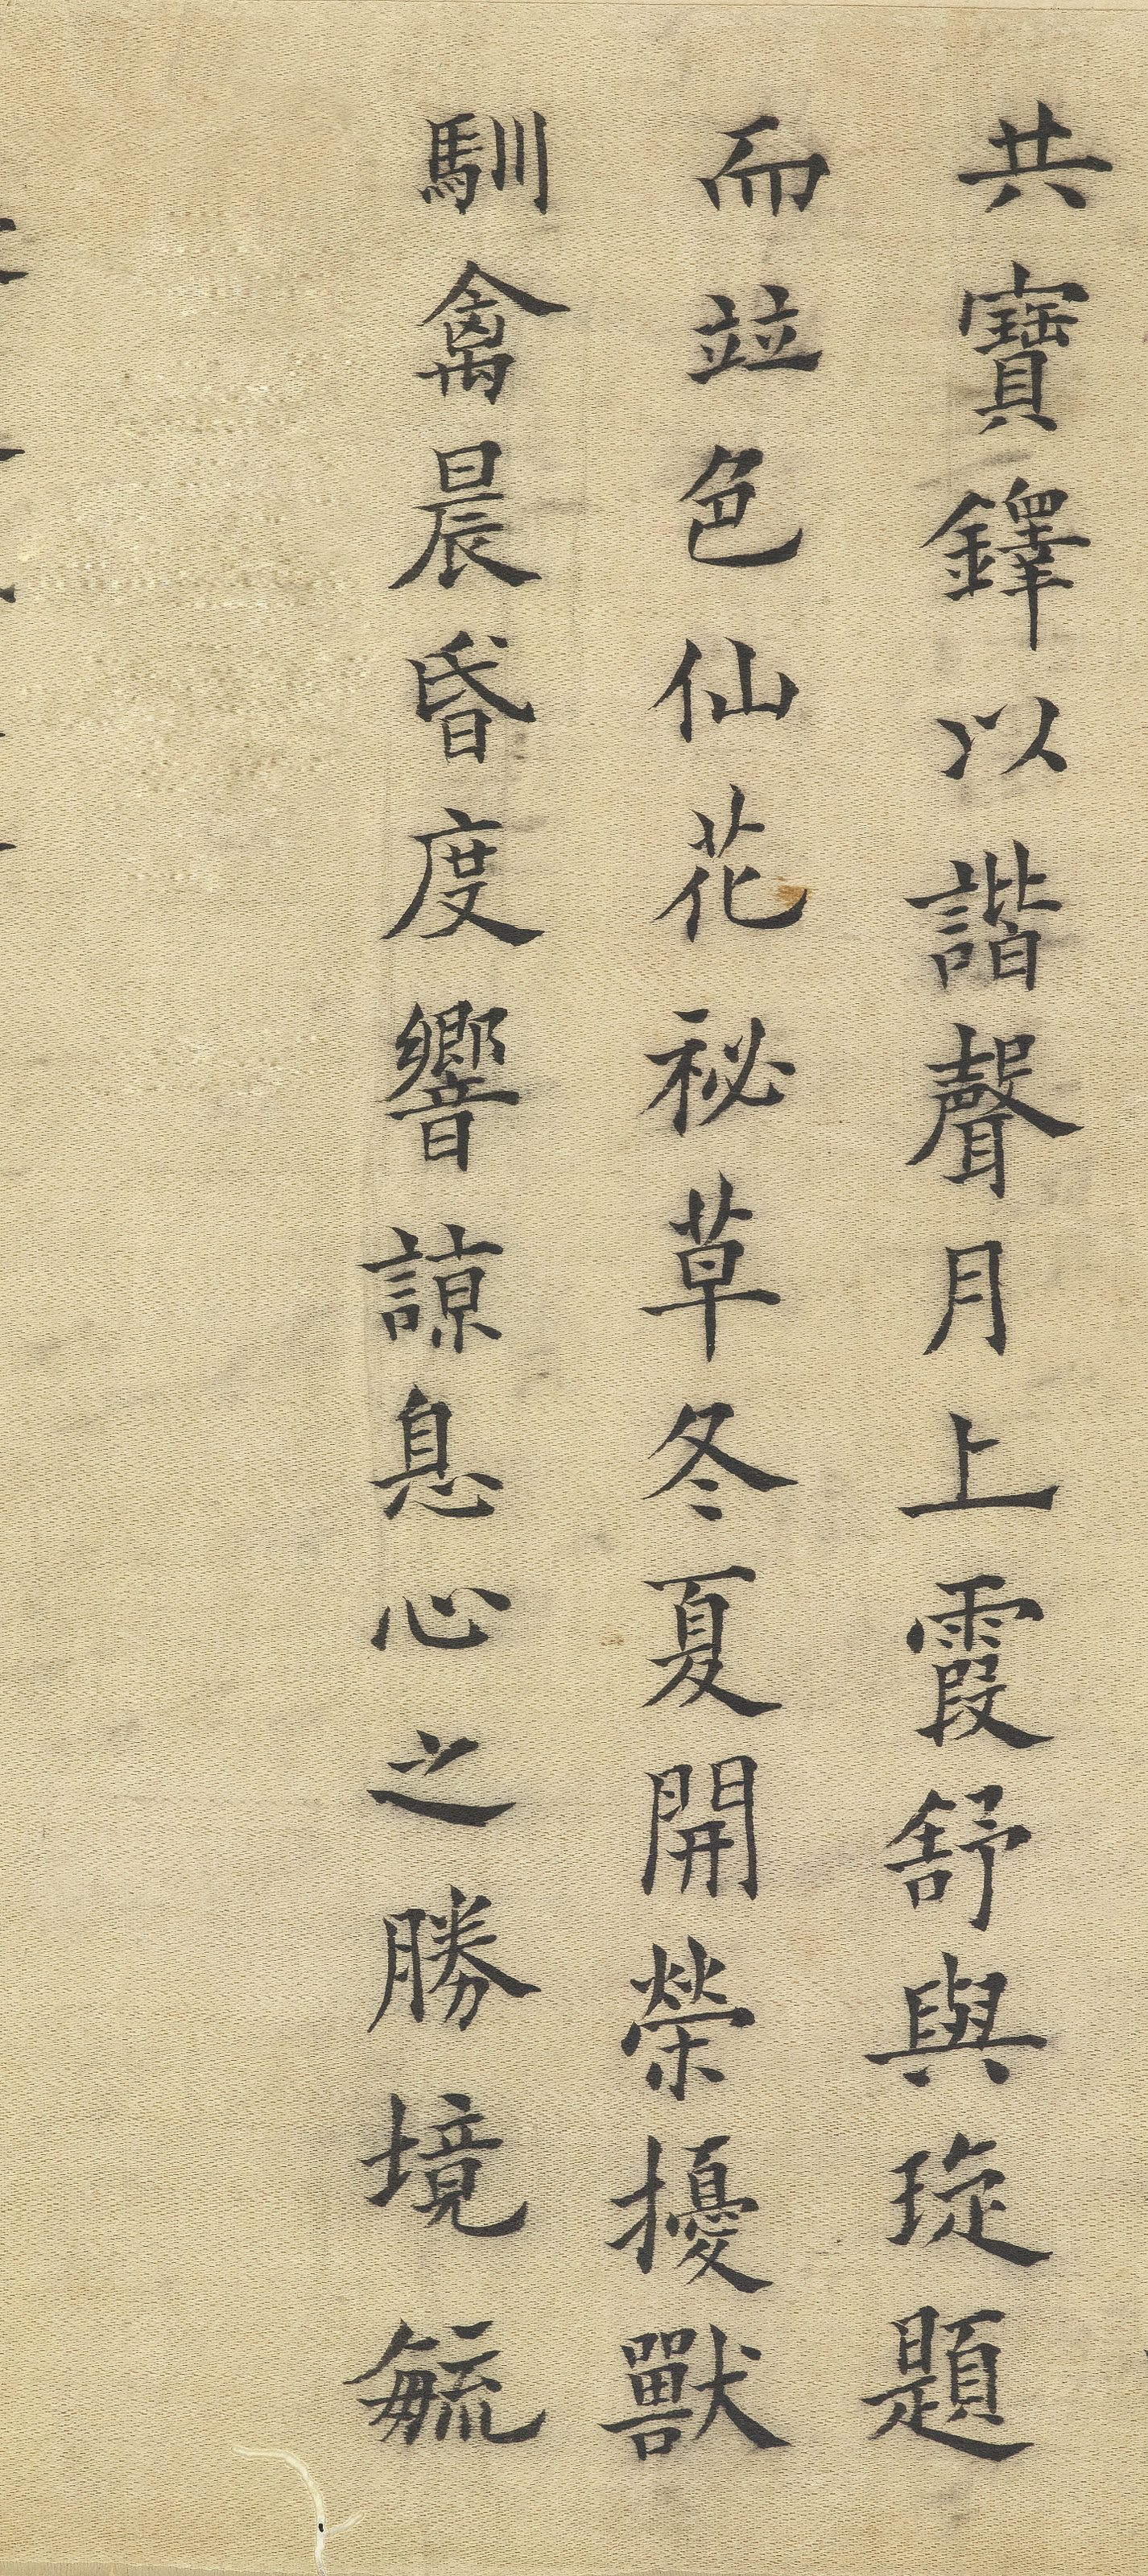 共寶鐸以諧聲月上霞舒與琁題
而竝色仙花秘草冬夏開榮擾獸
馴禽晨昏度響諒息心之勝境毓